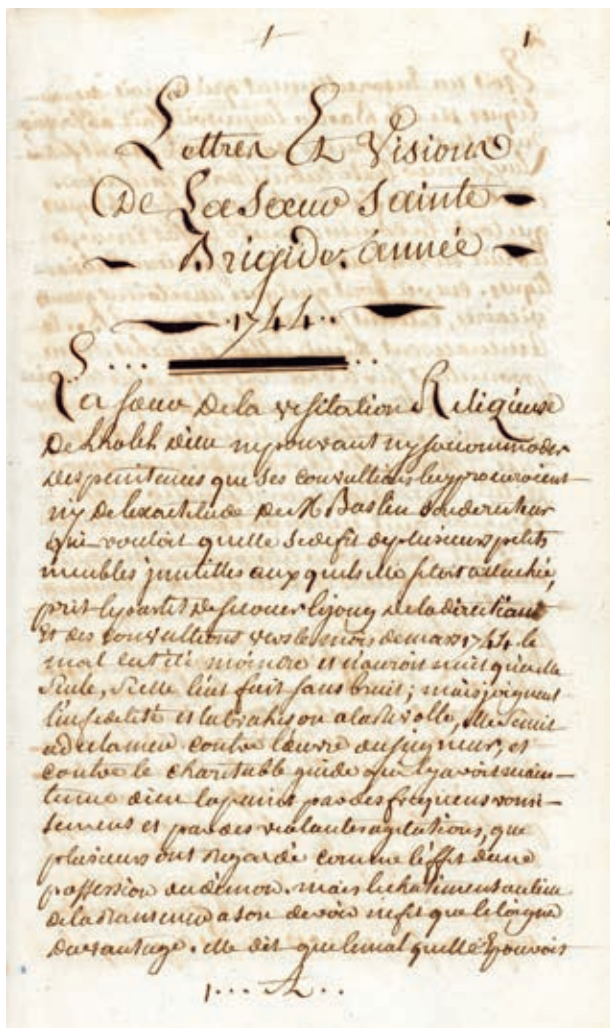 1 1
Lettres Et Visions
De La Sœur Sainte
Brigide. année
1744..
La sœur De la visitation Religieuse
De l'hotel dieu ne pouvant ny saccommoder
des penitences que ses convultions luy procuroient
ny de lexactitude de Mr Baslin son directeur
qui vouloit quelle se defit de plusieurs petits
meubles jnutilles aux quels elle etoit attachée,
prit le partit de secouer le joug de la direction
Et des convultions vers le mois de mars 1744. le
mal eut été moindre et n'auroit nuit qu'a elle
seule, si elle l'eut fait sans bruit; mais joignant
l'infidelité et la trahison a la revolte, elle se mit
a declamer contre l'œuvre du seigneur, et
contre le charitable guide qui l'y avoit main-
tenue dieu la punit par des frequens vomi-
semens et par des violantes agitations, que
plusieurs ont regardé comme l'effet d'une
possession du démon. mais le chatiment au lieu
de la ramener a son devoir ne fit que l'eloigner
davantage. elle dit que le mal quelle Eprouvoit